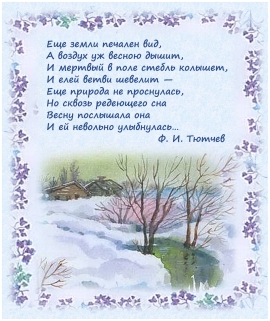 Еще земли печален вид,
А воздух уж весною дышит,
И мертвый в поле стебль колышет,
И елей ветви шевелит —
Еще природа не проснулась,
Но сквозь редеющего сна
Весну послышала она
И ей невольно улыбнулась...
Ф. И. Тютчев